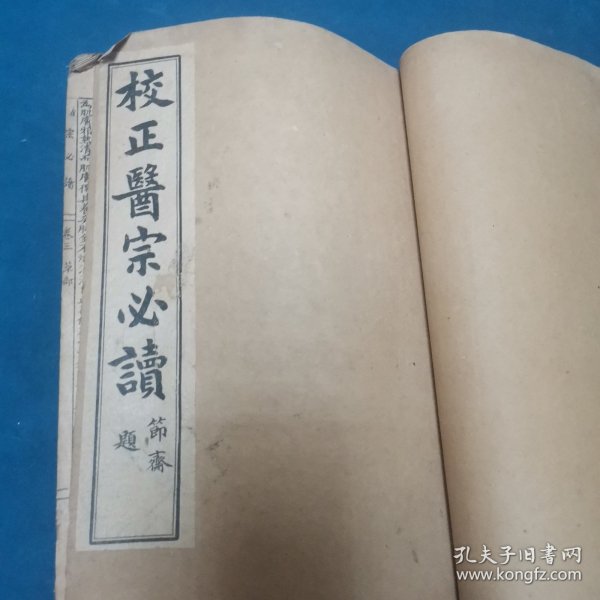 校正醫宗必讀
節齋
題
必讀
卷三 草部
孔夫子旧书网
www.kongfz.com